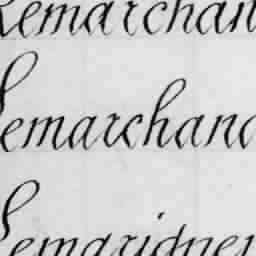 Lemarchan
Lemarchand
Lemarigner